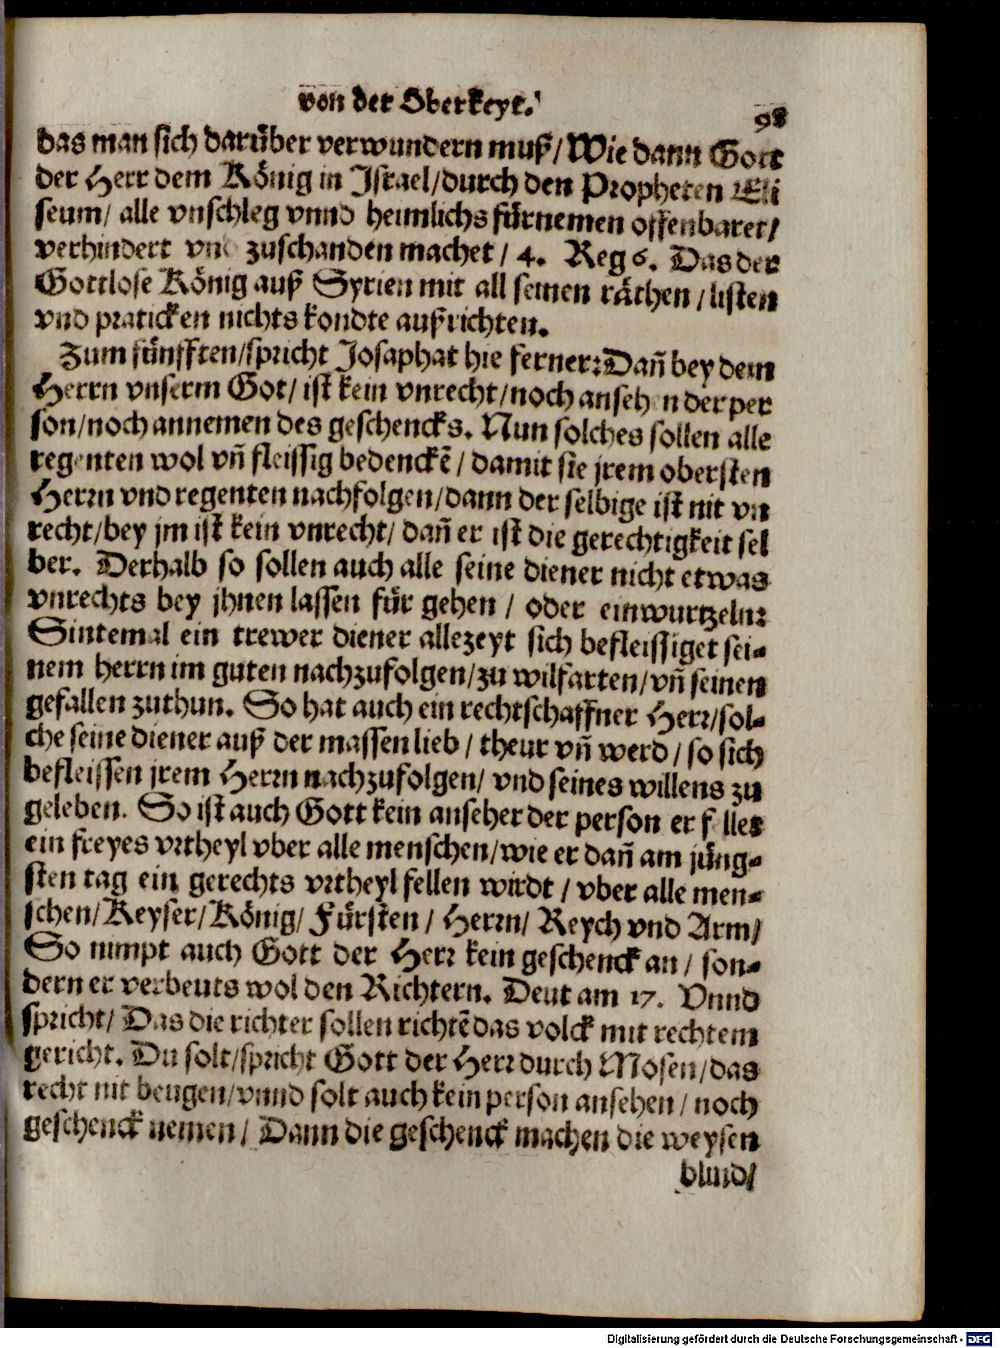 von der Oberkeyt.
98
das man sich darüber verwundern muß/Wie dann Gott
der Herr dem König in Israel/durch den Propheten Eli
seum/ alle vnschleg vnnd heimlichs fürnemen offenbaret/
verhindert vnd zuschanden machet/ 4. Reg 6. Das der
Gottlose König auß Syrien mit all seinen räthen/listen
vnd praticken nichts kondte außrichten.
Zum fünfften/spricht Josaphat hie ferner: Dañ bey dem
Herrn vnserm Got/ ist kein vnrecht/noch ansehen der per
son/noch annemen des geschencks. Nun solches sollen alle
regenten wol vñ fleissig bedenckẽ/ damit sie jrem obersten
Herrn vnd regenten nachfolgen/dann der selbige ist nit vn
recht/bey jm ist kein vnrecht/ dañ er ist die gerechtigkeit sel
ber. Derhalb so sollen auch alle seine diener nicht etwas
vnrechts bey jhnen lassen für gehen/ oder einwurtzeln:
Sintemal ein trewer diener allezeyt sich befleissiget sei-
nem herrn im guten nachzufolgen/zu wilfarten/vñ seinen
gefallen zuthun. So hat auch ein rechtschaffner Herr/sol-
che seine diener auß der massen lieb/ theur vñ werd/so sich
befleissen jrem Herrn nachzufolgen/ vnd seines willens zu
geleben. So ist auch Gott kein anseher der person er fellet
ein freyes vrtheyl vber alle menschen/wie er dañ am jüng-
sten tag ein gerechts vrtheyl fellen wirdt/ vber alle men-
schen/Keyser/König/ Fürsten/ Herrn/ Reych vnd Arm/
So nimpt auch Gott der Herr kein geschenck an/ son-
dern er verbeuts wol den Richtern. Deut am 17. Vnnd
spricht/ Das die richter sollen richtẽ das volck mit rechtem
gericht. Du solt/spricht Gott der Herr durch Mosen/das
recht nit beugen/vnnd solt auch kein person ansehen/ noch
geschenck nemen/ Dann die geschenck machen die weysen
blind/
Digitalisierung gefördert durch die Deutsche Forschungsgemeinschaft - DFG